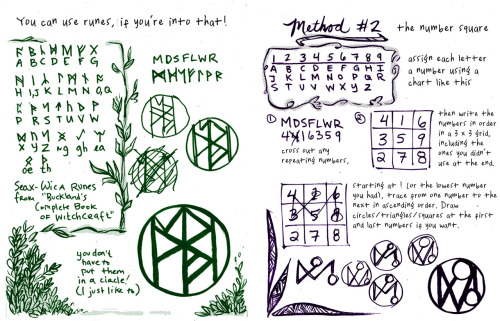 You can use runes, if you're into that!
A B C D E F G
H I J K L M N O Q
P R S T U V W
X Y Z Ng gh ea
oe th
Seax-Wica Runes
from "Buckland's
Complete Book
of Witchcraft"
MDSFLWR
you don't
have to
put them
in a circle!
(I just like to)
Method #2 the number square
1 2 3 4 5 6 7 8 9
A B C D E F G H I
J K L M N O P Q R
S T U V W X Y Z
assign each letter
a number using a
chart like this
① MDSFLWR
4 4 1 6 3 5 9
cross out any
repeating numbers,
②
4 1 6
3 5 9
2 7 8
then write the
numbers in order
in a 3 x 3 grid,
including the
ones you didn't
use at the end.
4 1 6
3 5 9
2 7 8
starting at 1 (or the lowest number
you had), trace from one number to the
next in ascending order. Draw
circles/triangles/squares at the first
and last numbers if you want.